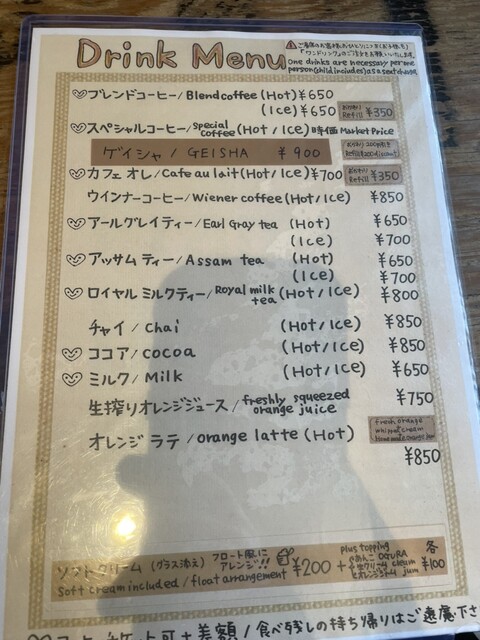 Drink Menu
「ワンドリンク」のご注文をお願いいたします。
one drinks are necessary per one
person (child includes) as a seat charge.
ブレンドコーヒー/Blend coffee (Hot) ¥650
(Ice) ¥650 おかわり Refill ¥350
スペシャルコーヒー/special coffee (Hot/Ice) 時価 Market Price
ゲイシャ/GEISHA ¥900 おかわり 200円引き Refill ¥200 discount
カフェオレ/Cafe au lait (Hot/Ice) ¥700 おかわり Refill ¥350
ウインナーコーヒー/Wiener coffee (Hot/Ice) ¥850
アールグレイティー/Earl Gray tea (Hot) ¥650
(Ice) ¥700
アッサムティー/Assam tea (Hot) ¥650
(Ice) ¥700
ロイヤルミルクティー/Royal milk tea (Hot/Ice) ¥800
チャイ/Chai (Hot/Ice) ¥850
ココア/cocoa (Hot/Ice) ¥850
ミルク/Milk (Hot/Ice) ¥650
生搾りオレンジジュース/freshly squeezed orange juice ¥750
オレンジラテ/orange latte (Hot)
fresh orange
whipped cream
¥850
ソフトクリーム(グラス添え) フロート風にアレンジ!! ¥200
soft cream included/float arrangement
+ plus topping
OGURA
各¥100
チケット可+差額/食べ残しの持ち帰りはご遠慮下さ